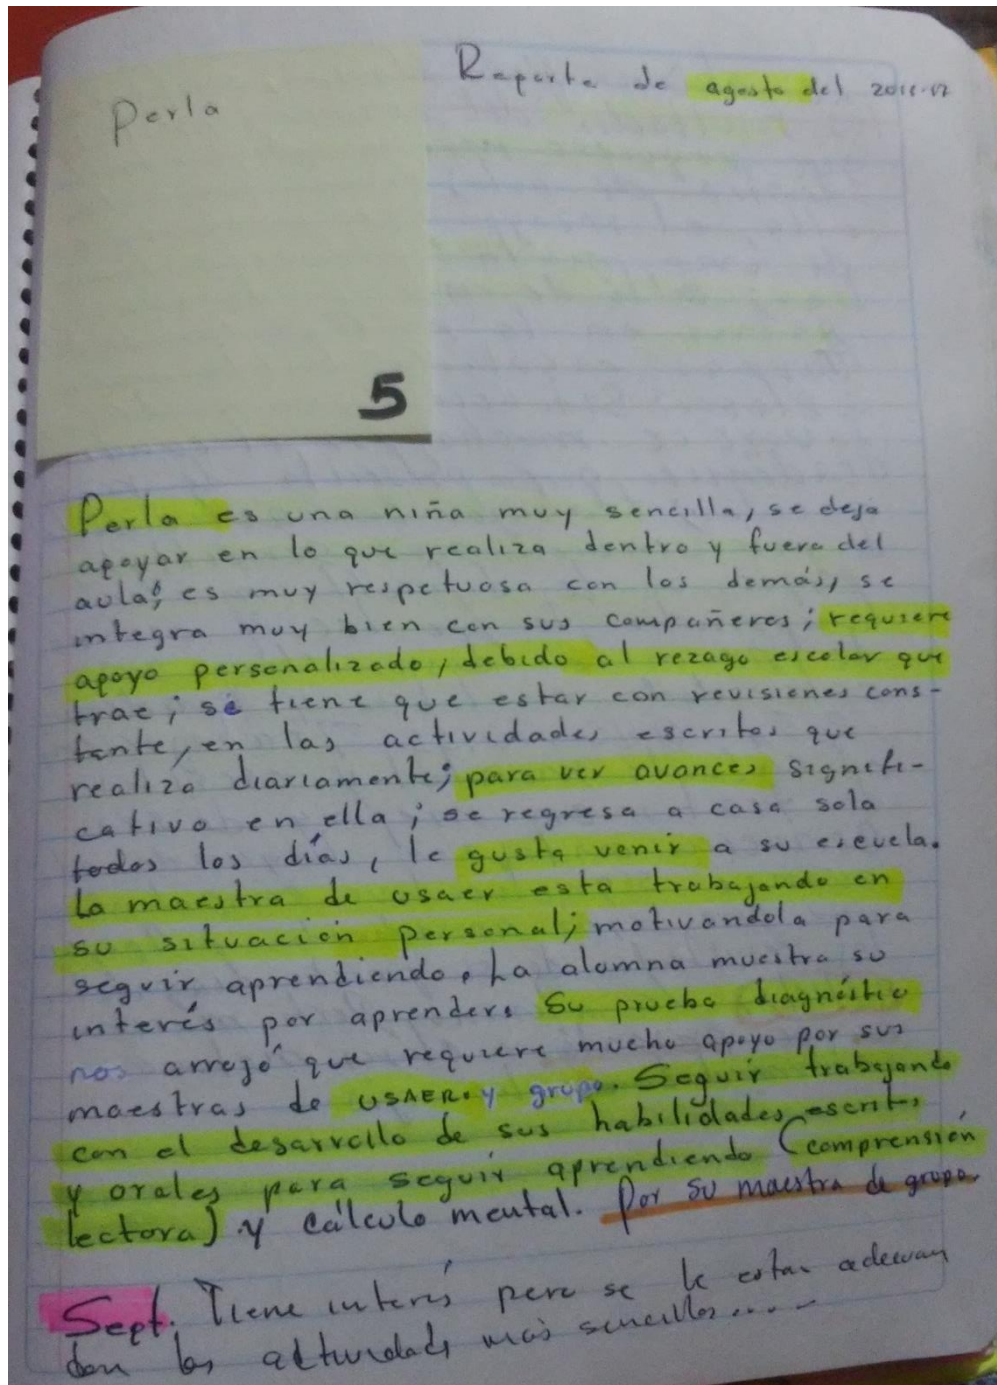 Reporte de agosto del 2016-17
Perla
5
Perla es una niña muy sencilla, se deja
apoyar en lo que realiza dentro y fuera del
aula; es muy respetuosa con los demás, se
integra muy bien con sus compañeros; requiere
apoyo personalizado, debido al rezago escolar que
trae; se tiene que estar con revisiones cons-
tante, en las actividades escritas que
realiza diariamente; para ver avances signifi-
cativo en ella; se regresa a casa sola
todos los días, le gusta venir a su escuela.
La maestra de usaer esta trabajando en
su situación personal; motivandola para
seguir aprendiendo. La alumna muestra su
interés por aprender. Su prueba diagnóstic
nos arrojó que requiere mucho apoyo por sus
maestras de USAER. y grupo. Seguir trabajando
con el desarrollo de sus habilidades escritas
y orales para seguir aprendiendo (comprensión
lectora) y cálculo mental. Por su maestra de grupo.
Sept. Tiene interés pero se le estan adecuan
don las actividads más sencillas.....